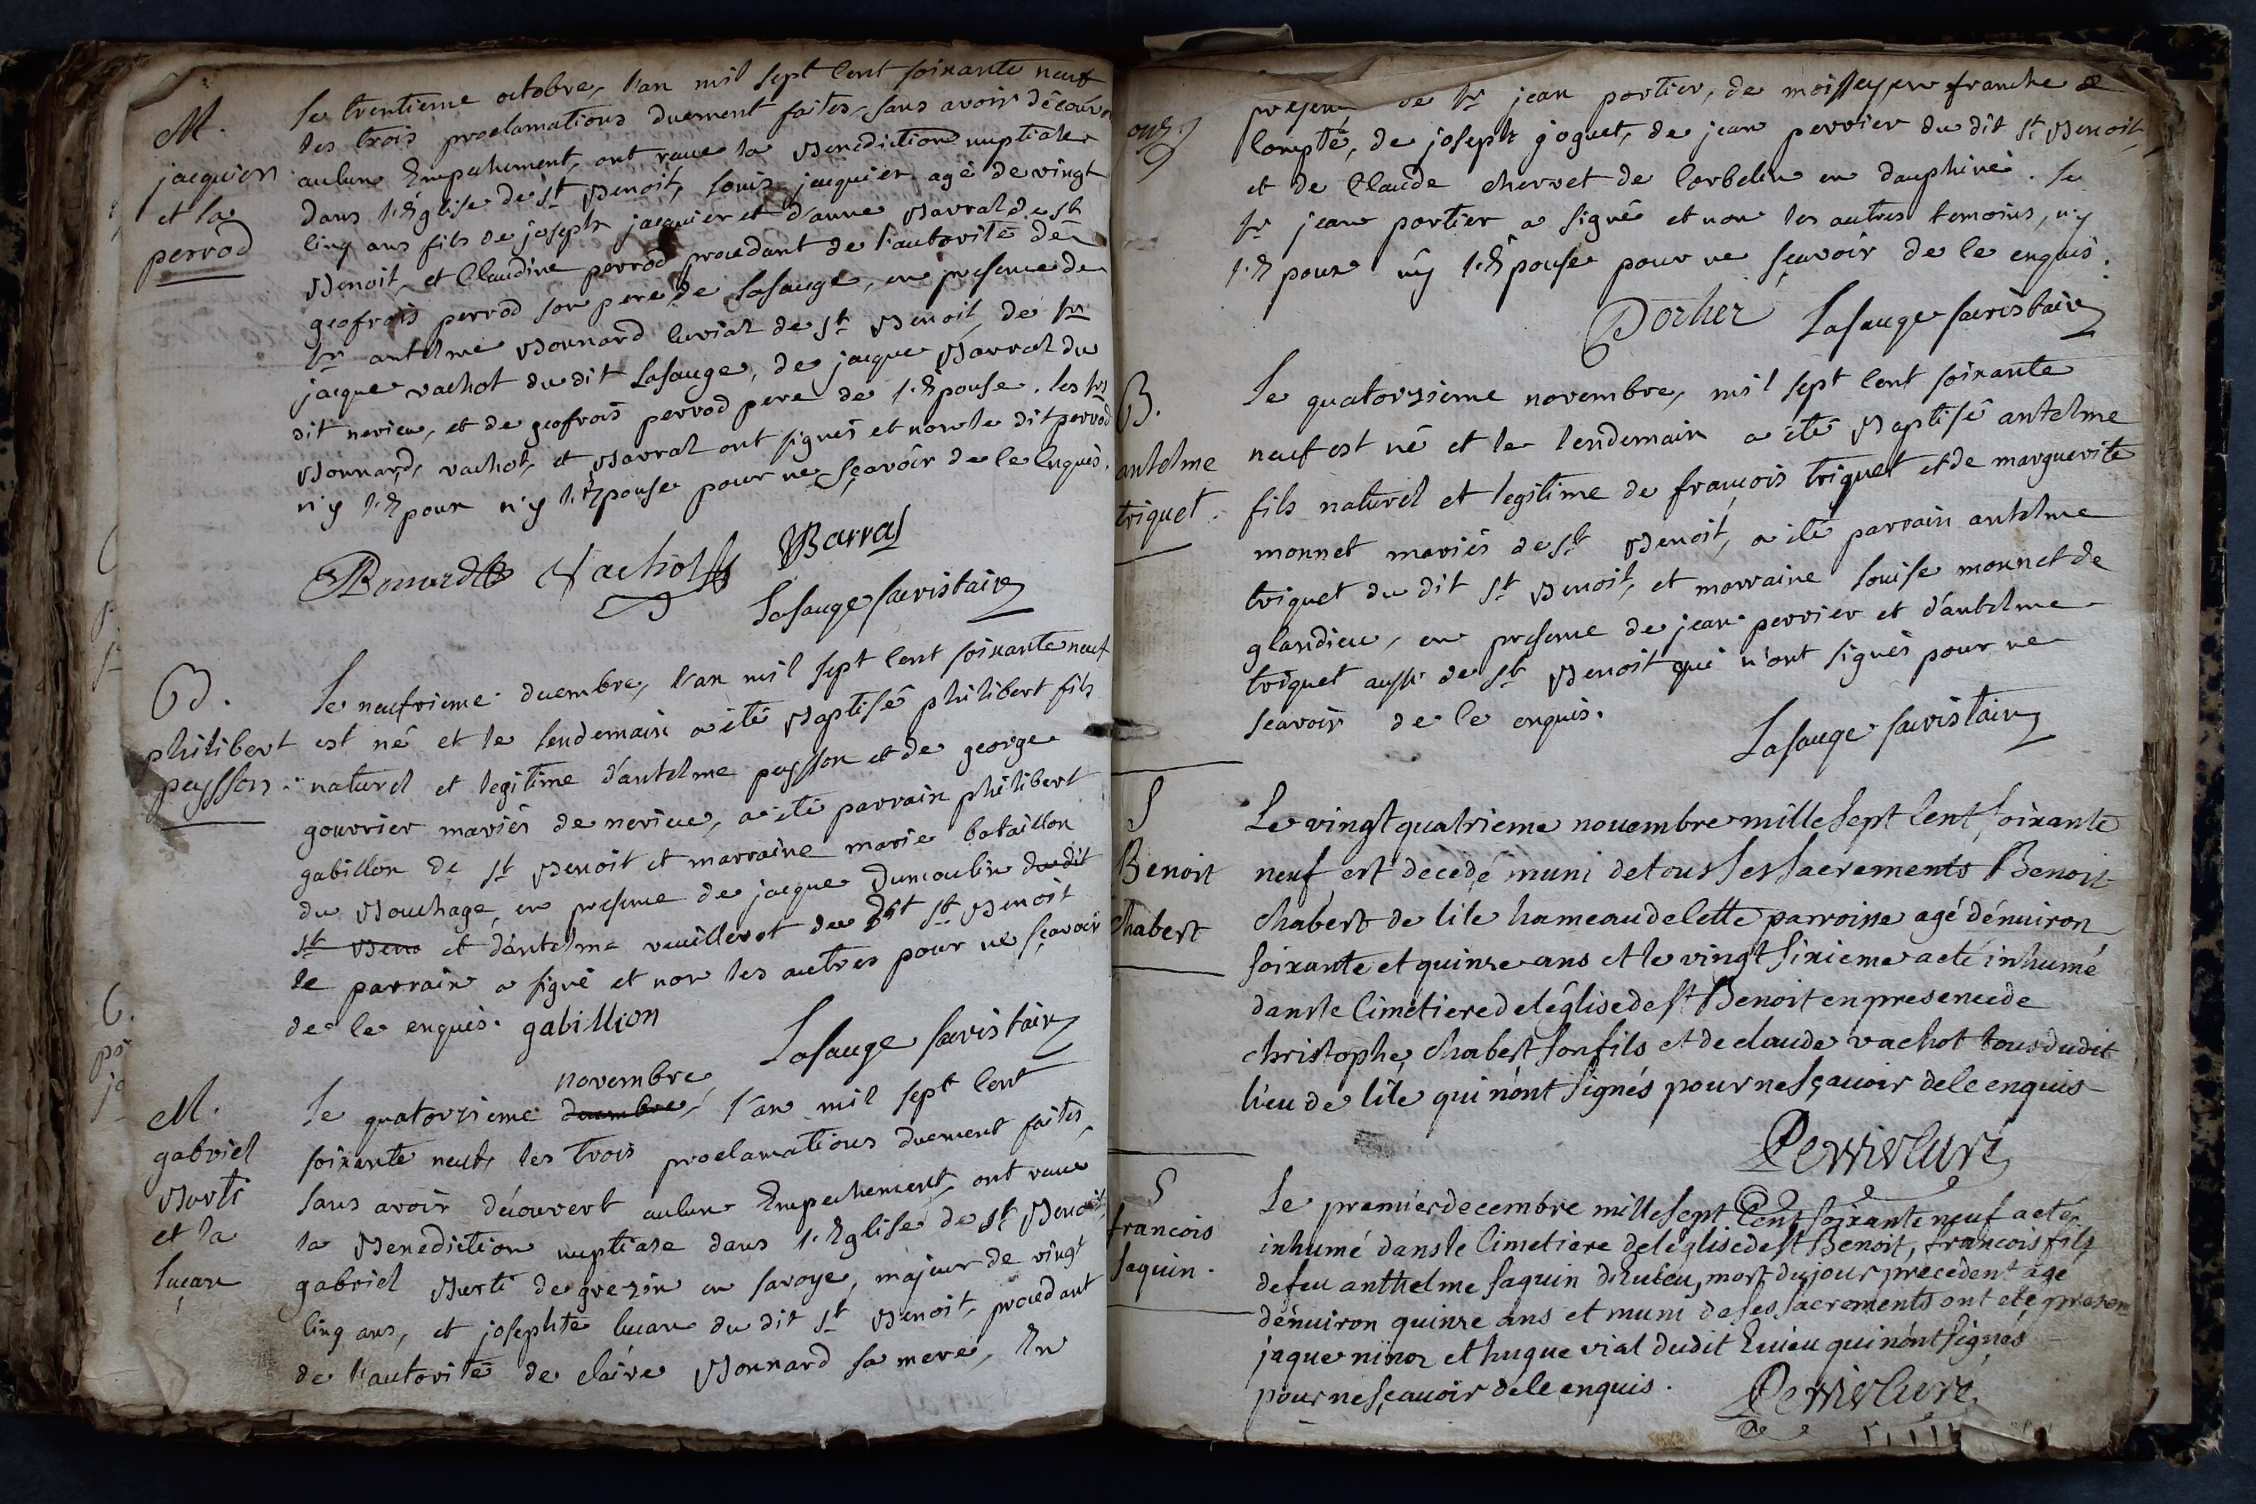 M.
jacquier
et la
perrod
Le trentieme octobre, l'an mil sept cent soixante neuf
les trois proclamations duement faites, sans avoir découvert
aucun Empechement, ont recue la Benediction nuptiale
dans l'Eglise de St Benoit, louis jacquier agé de vingt
cinq ans fils de joseph jacquier et d'anne Barral de St
Benoit, et Claudine perrod procedant de l'autorité de
geofrois perrod son pere de Lasauge, en presence de
Sr antelme Bonnard curial de St Benoit, de Sr
jacque vachot du dit Lasauge, de jacque Barral du
dit nerieu, et de geofrois perrod pere de l'Epouse. les Srs
Bonnard, vachot, et Barral ont signés et non le dit perrod
n'y l'Epoux n'y l'Epouse pour ne sçavoir de ce Enquis.
Bonnard Vachot Barral
Lasauge sacristain
B.
philibert
peysson
Le neufvieme decembre, l'an mil sept cent soixante neuf
est né et le lendemain a été Baptisé philibert fils
naturel et legitime d'antelme peysson et de george
gouvrier mariés de nerieu, a été parrain philibert
gabillon de St Benoit et marraine marie bataillon
du Bouchage, en presence de jacque Dumoulin du dit
St Beno et d'antelme veuillerot du dit St Benoit
le parrain a signé et non les autres pour ne sçavoir
de ce enquis. gabillion
Lasauge sacristain
M.
gabriel
Burti
et la
lucan
novembre
Le quatorzieme decembre, l'an mil sept cent
soixante neuf, les trois proclamations duement faites,
sans avoir découvert aucun Empechement, ont recue
la Benediction nuptiale dans l'Eglise de St Benoit,
gabriel Burti de grezin en savoye, majeur de vingt
cinq ans, et josephte lucan du dit St Benoit, procedant
de l'autorité de claire Bonnard sa mere, En
presence de Sr jean portier, de moisseyeu franche
Compté, de joseph joguet, de jean perrier du dit St Benoit,
et de Claude chervet de Corbelin en dauphiné. Le
Sr jean portier a signé et non les autres temoins, n'y
l'Epoux n'y l'Epouse pour ne sçavoir de ce enquis.
Lasauge sacristain
B.
antelme
triquet.
Le quatorzieme novembre, mil sept cent soixante
neuf est né et le lendemain a été Baptisé antelme
fils naturel et legitime de françois triquet et de marguerite
monnet mariés de St Benoit, a été parrain antelme
triquet du dit St Benoit, et marraine louise monnet de
glandieu, en presence de jean perrier et d'antelme
triquet aussi de St Benoit qui n'ont signés pour ne
scavoir de ce enquis.
Lasauge sacristain
S
Benoit
Chabert
Le vingt quatrieme nouembre mille sept Cent soixante
neuf est decedé muni de tous ses sacrements Benoit
Chabert de lile hameau de Cette parroisse agé dénuiron
soixante et quinze ans et le vingt sixieme a eté inhumé
dans le Cimetiere de l'église de St Benoit en presence de
christophe, Chabert son fils et de claude vachot tous dudit
lieu de lile qui n'ont signés pour ne sçauoir de le enquis
Perrier Curé
S
francois
saquin.
Le premier decembre mille sept Cent soixante neuf a eté
inhumé dans le Cimetiere de l'eglise de St Benoit, francois fils
de feu anthelme saquin, mort du jour precedent agé
dénuiron quinze ans et muni de ses sacrements ont eté presen
jaque ninoz et hugue vial dudit qui n'ont signés
pour ne sçauoir de le enquis.
Perrier Curé